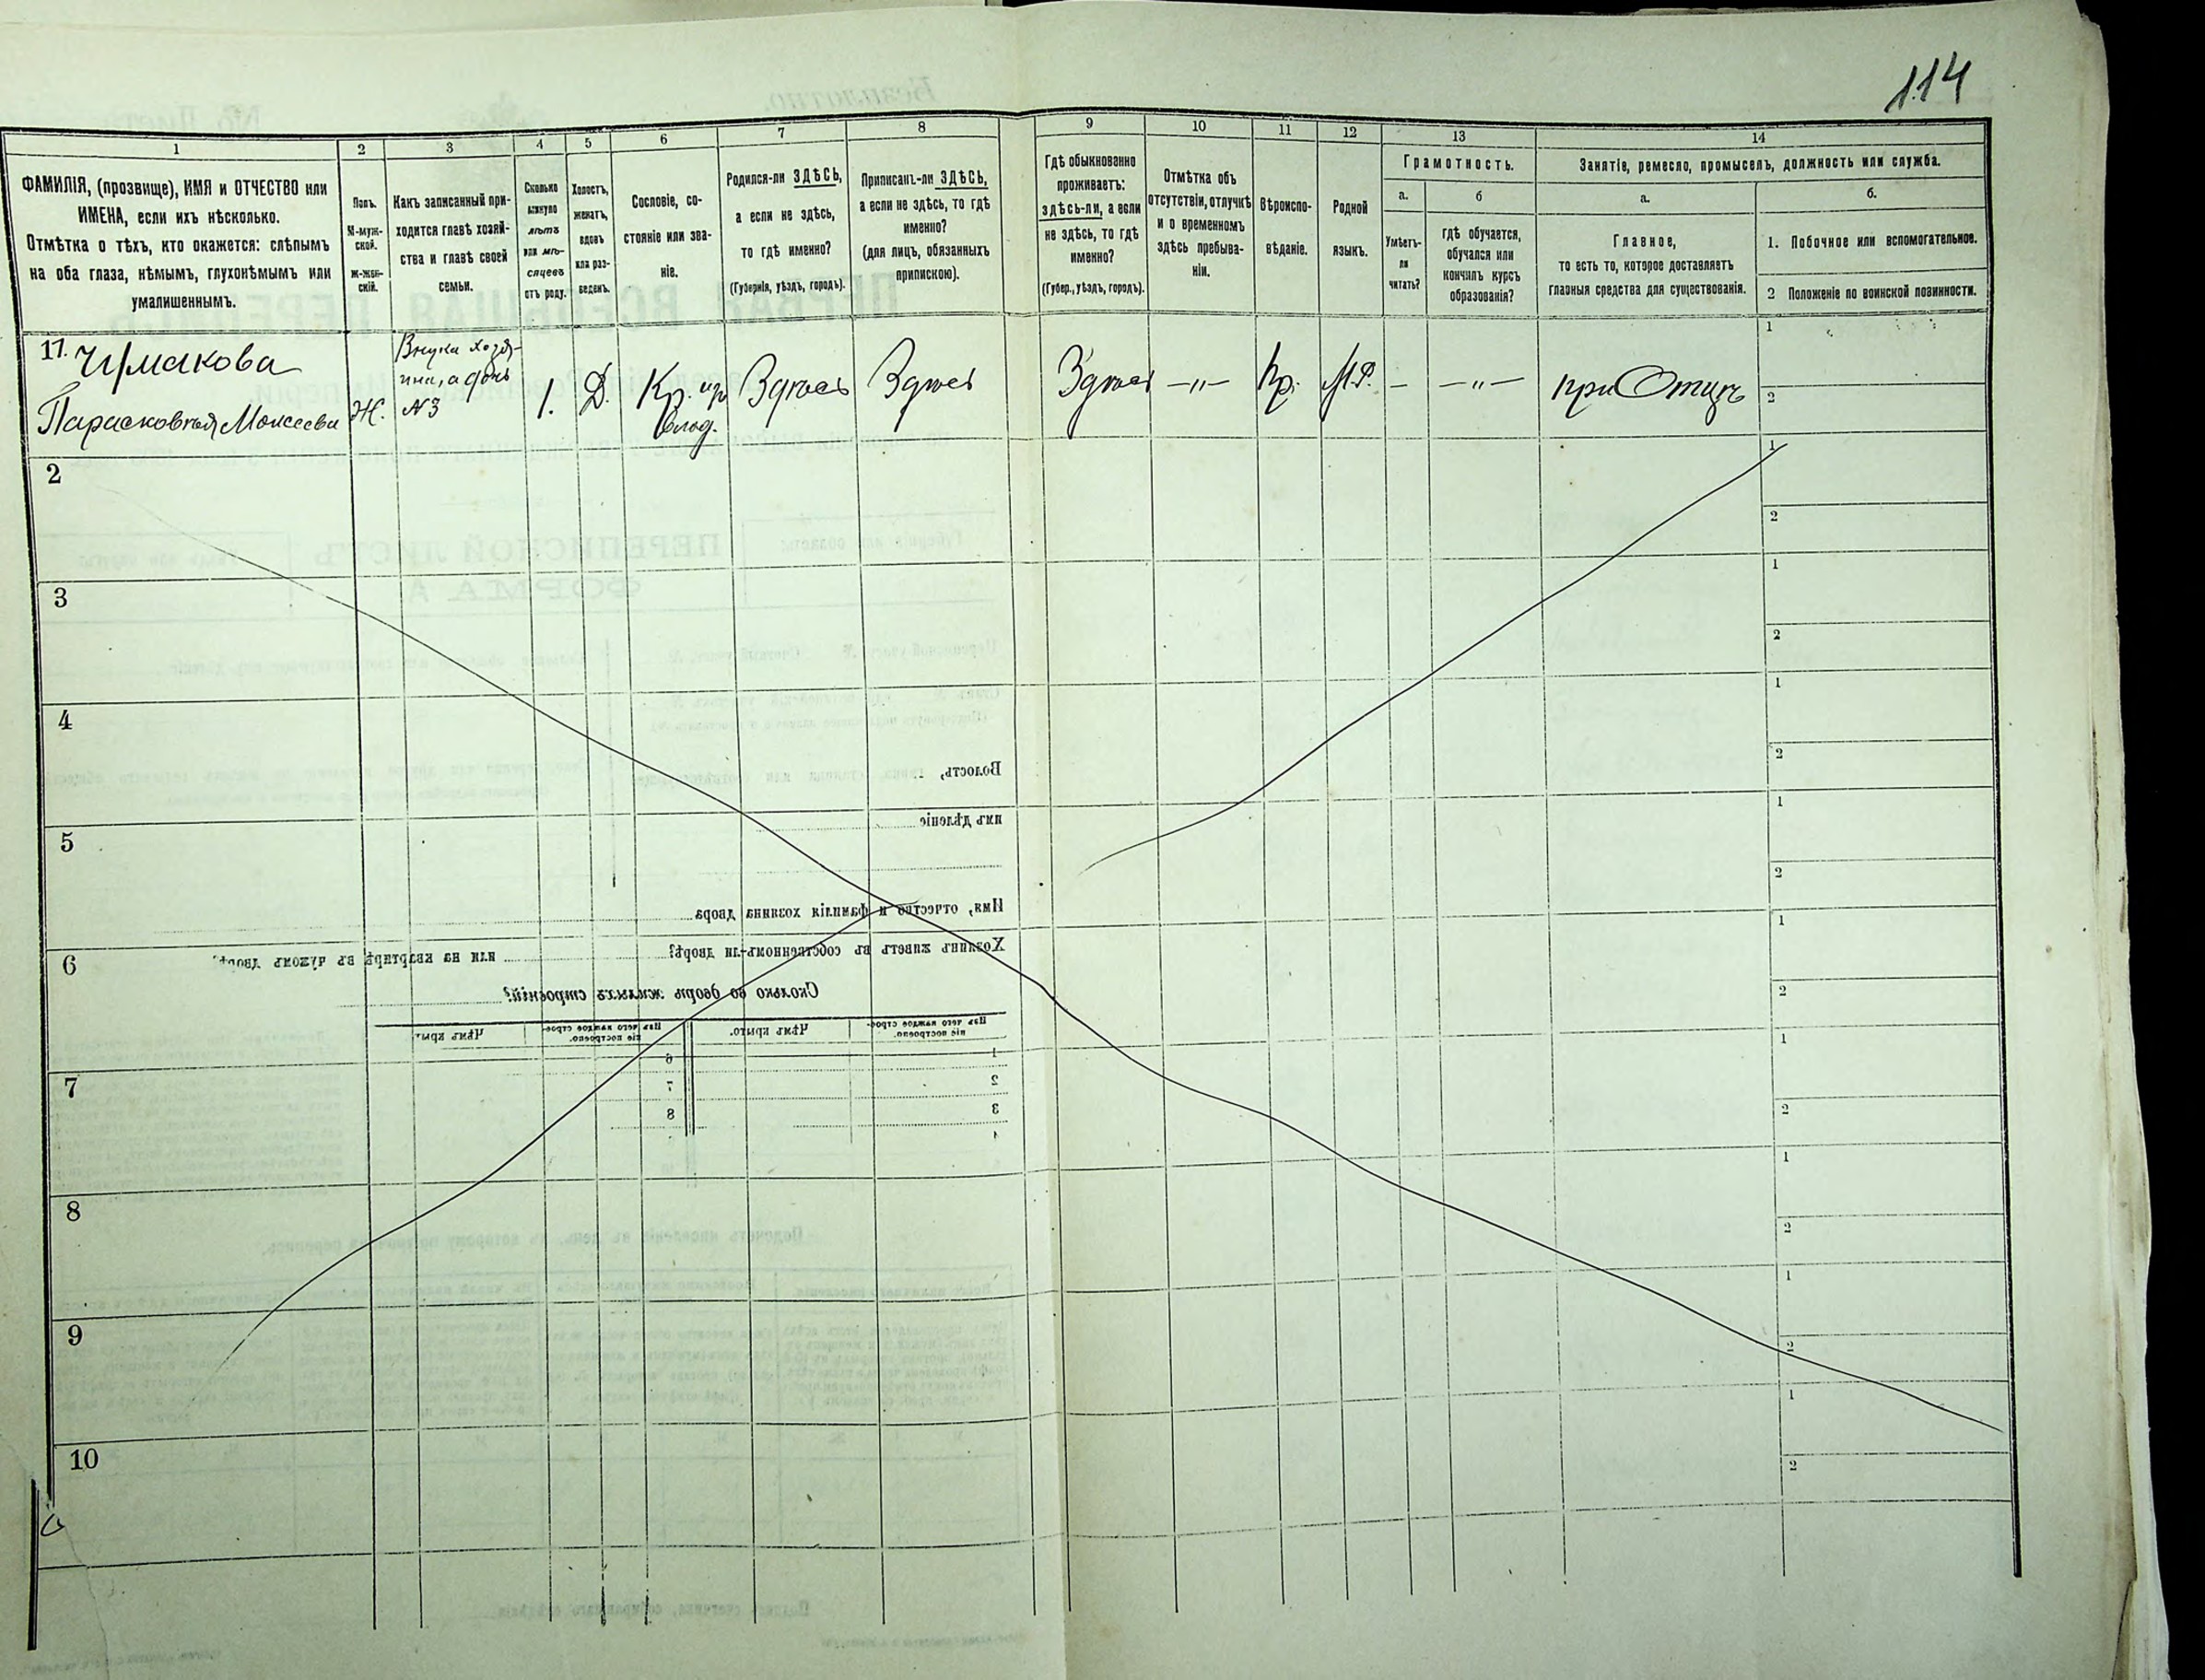 114
1 2 3 4 5 6 7 8 9 10 11 12 13 14
ФАМИЛІЯ, (прозвище), ИМЯ и ОТЧЕСТВО или
ИМЕНА, если ихъ нѣсколько.
Отмѣтка о тѣхъ, кто окажется: слѣпымъ
на оба глаза, нѣмымъ, глухонѣмымъ или
умалишеннымъ.
Полъ.
М-муж-
ской.
Ж-жен-
скій.
Какъ записанный при-
ходится главѣ хозяй-
ства и главѣ своей
семьи.
Сколько
минуло
лѣтъ
или мѣ-
сяцевъ
отъ роду.
Холостъ,
женатъ,
вдовъ
или раз-
веденъ.
Сословіе, со-
стояніе или зва-
ніе.
Родился-ли ЗДѢСЬ,
а если не здѣсь,
то гдѣ именно?
(Губернія, уѣздъ, городъ).
Приписанъ-ли ЗДѢСЬ,
а если не здѣсь, то гдѣ
именно?
(для лицъ, обязанныхъ
припискою).
Гдѣ обыкновенно
проживаетъ:
здѣсь-ли, а если
не здѣсь, то гдѣ
именно?
(Губер., уѣздъ, городъ).
Отмѣтка объ
отсутствіи, отлучкѣ
и о временномъ
здѣсь пребыва-
ніи.
Вѣроиспо-
вѣданіе.
Родной
языкъ.
Грамотность.
а.
Умѣетъ-
ли
читать?
б
гдѣ обучается,
обучался или
кончилъ курсъ
образованія?
Занятіе, ремесло, промыселъ, должность или служба.
а.
Главное,
то есть то, которое доставляетъ
главныя средства для существованія.
б.
1. Побочное или вспомогательное.
2 Положеніе по воинской повинности.
17. Чумакова
Парасковья Моисеева
Ж.
Внука хозя-
ина, а дочь
№3
1.
Д.
Кр. из
влад.
Здѣсь
Здѣсь
Здѣсь
—"—
Пр.
М.Р.
—
—"—
при Отцѣ
1
2
2
1
2
3
1
2
4
1
2
5
1
2
6
1
2
7
1
2
8
1
2
9
1
2
10
1
2